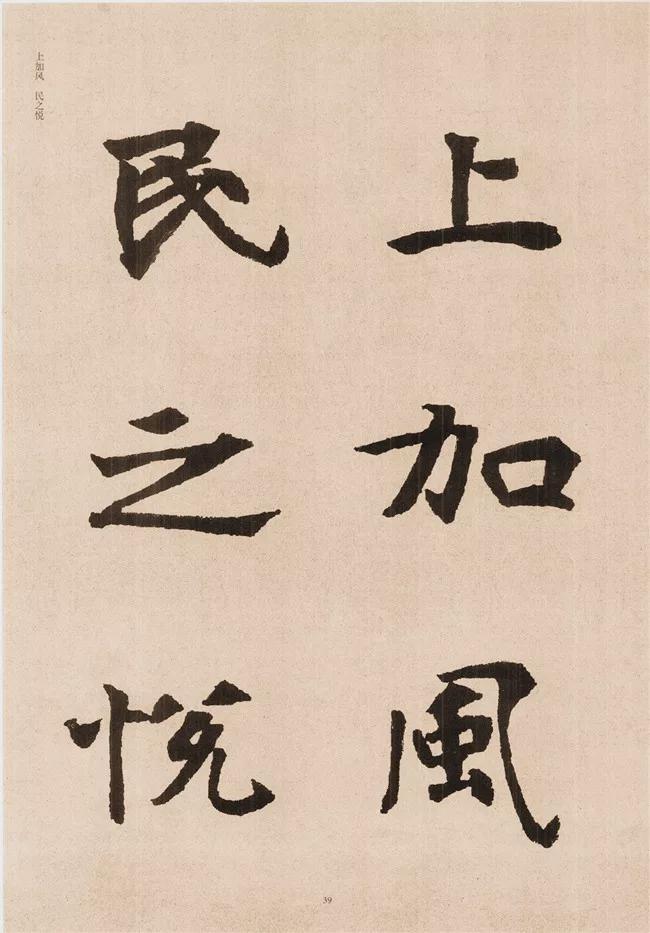 上加風
民之悅
上加风 民之悦
39